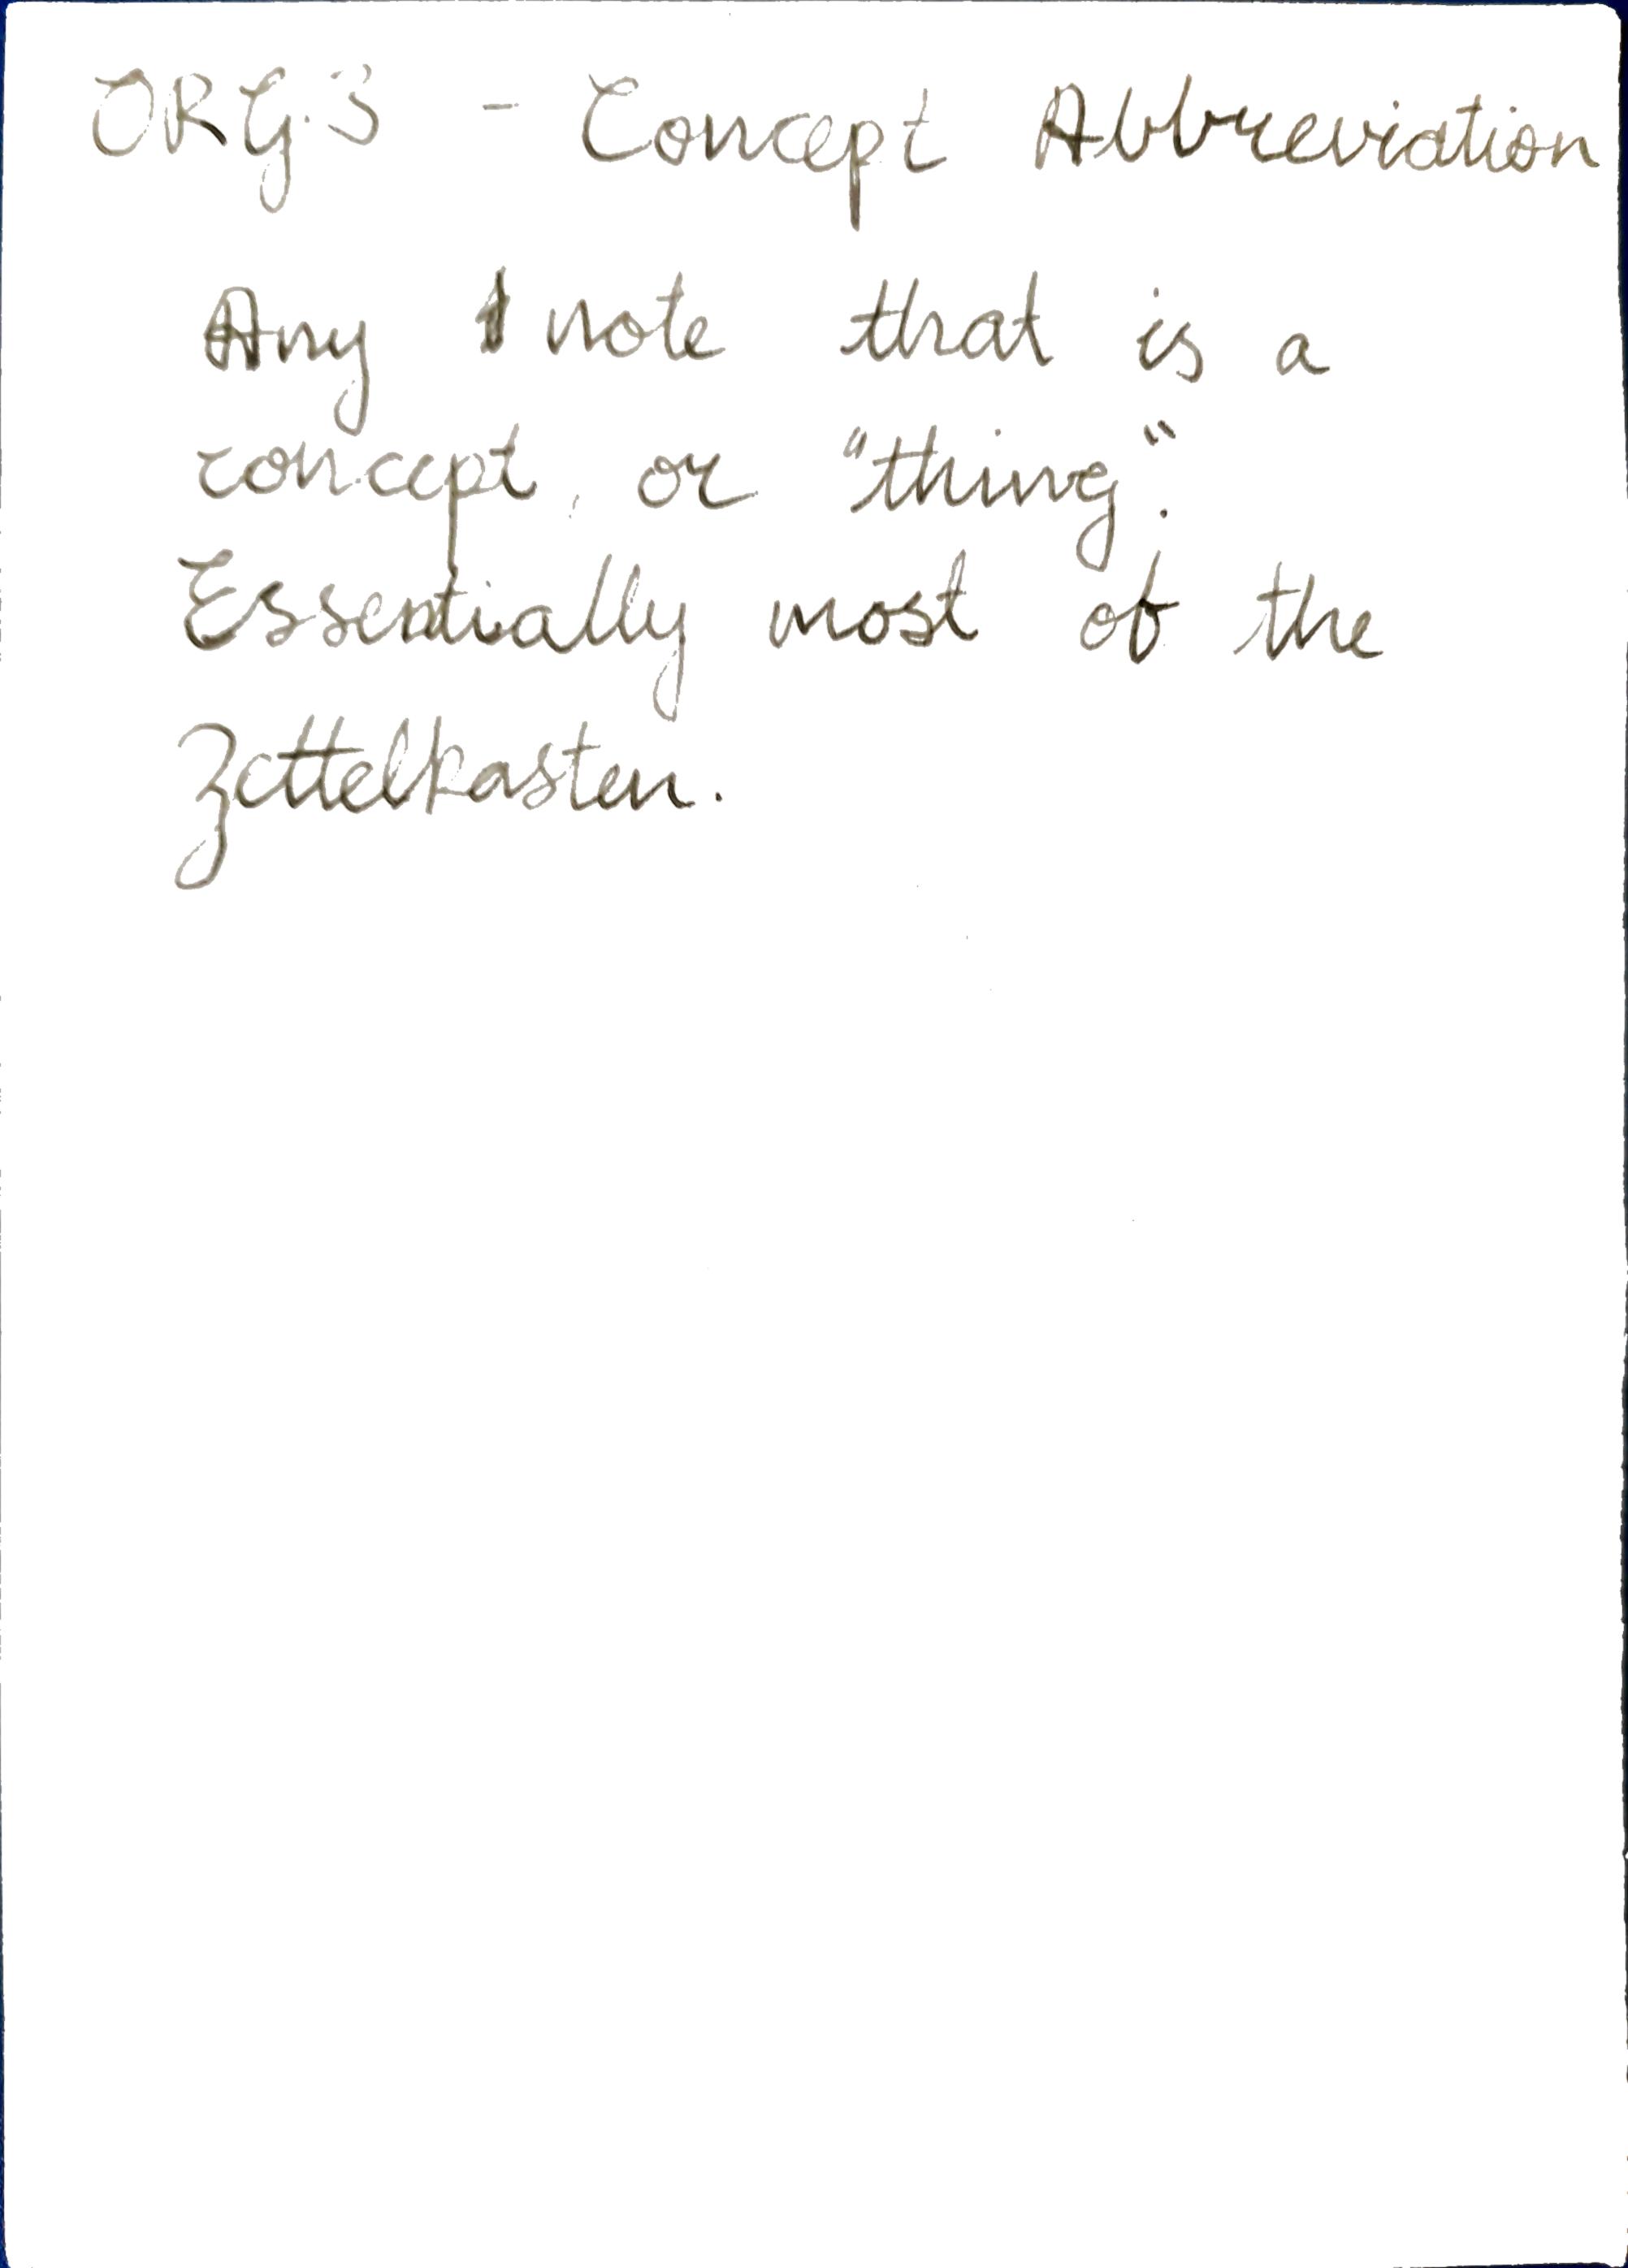 ORG.3 - Concept Abbreviation
Any note that is a
concept, or "thing".
Essentially most of the
Zettelkasten.